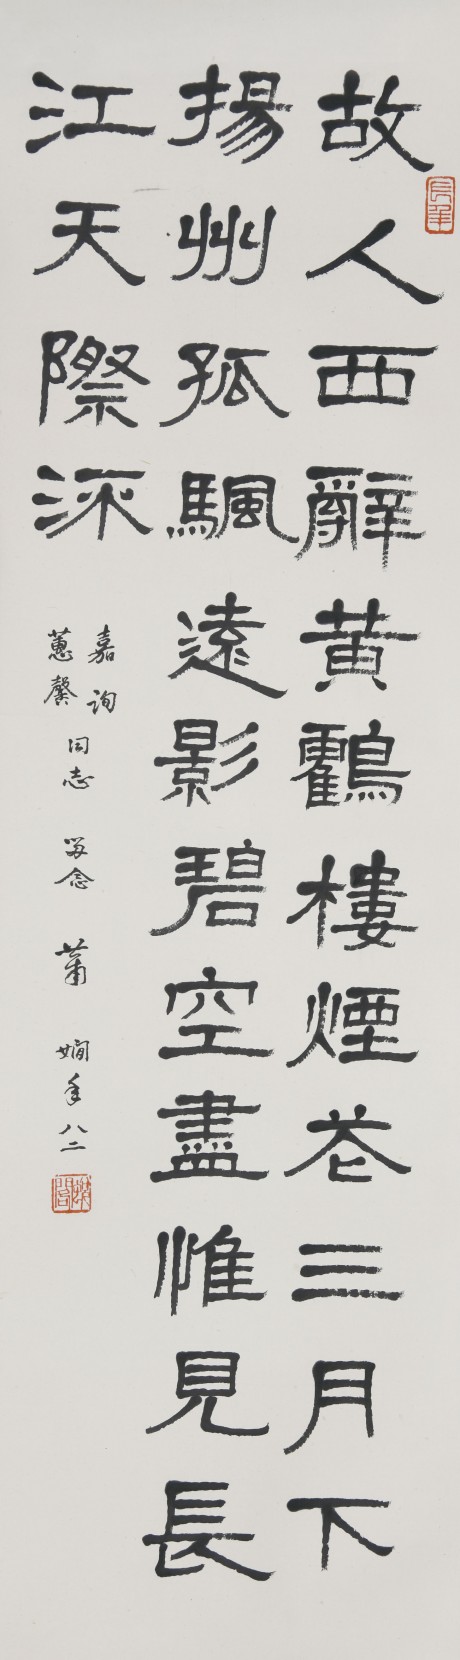 故人西辭黃鸖樓煙花三月下
揚州孤颿遠影碧空盡惟見長
江天際流
嘉詢
蕙馨
同志 留念 蕭嫺年八二